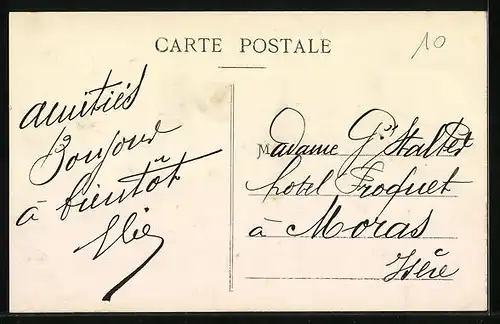 CARTE POSTALE
10
amitiés
Bonjour
à bientôt
Madame
hotel Froquet
à Moras
Isère